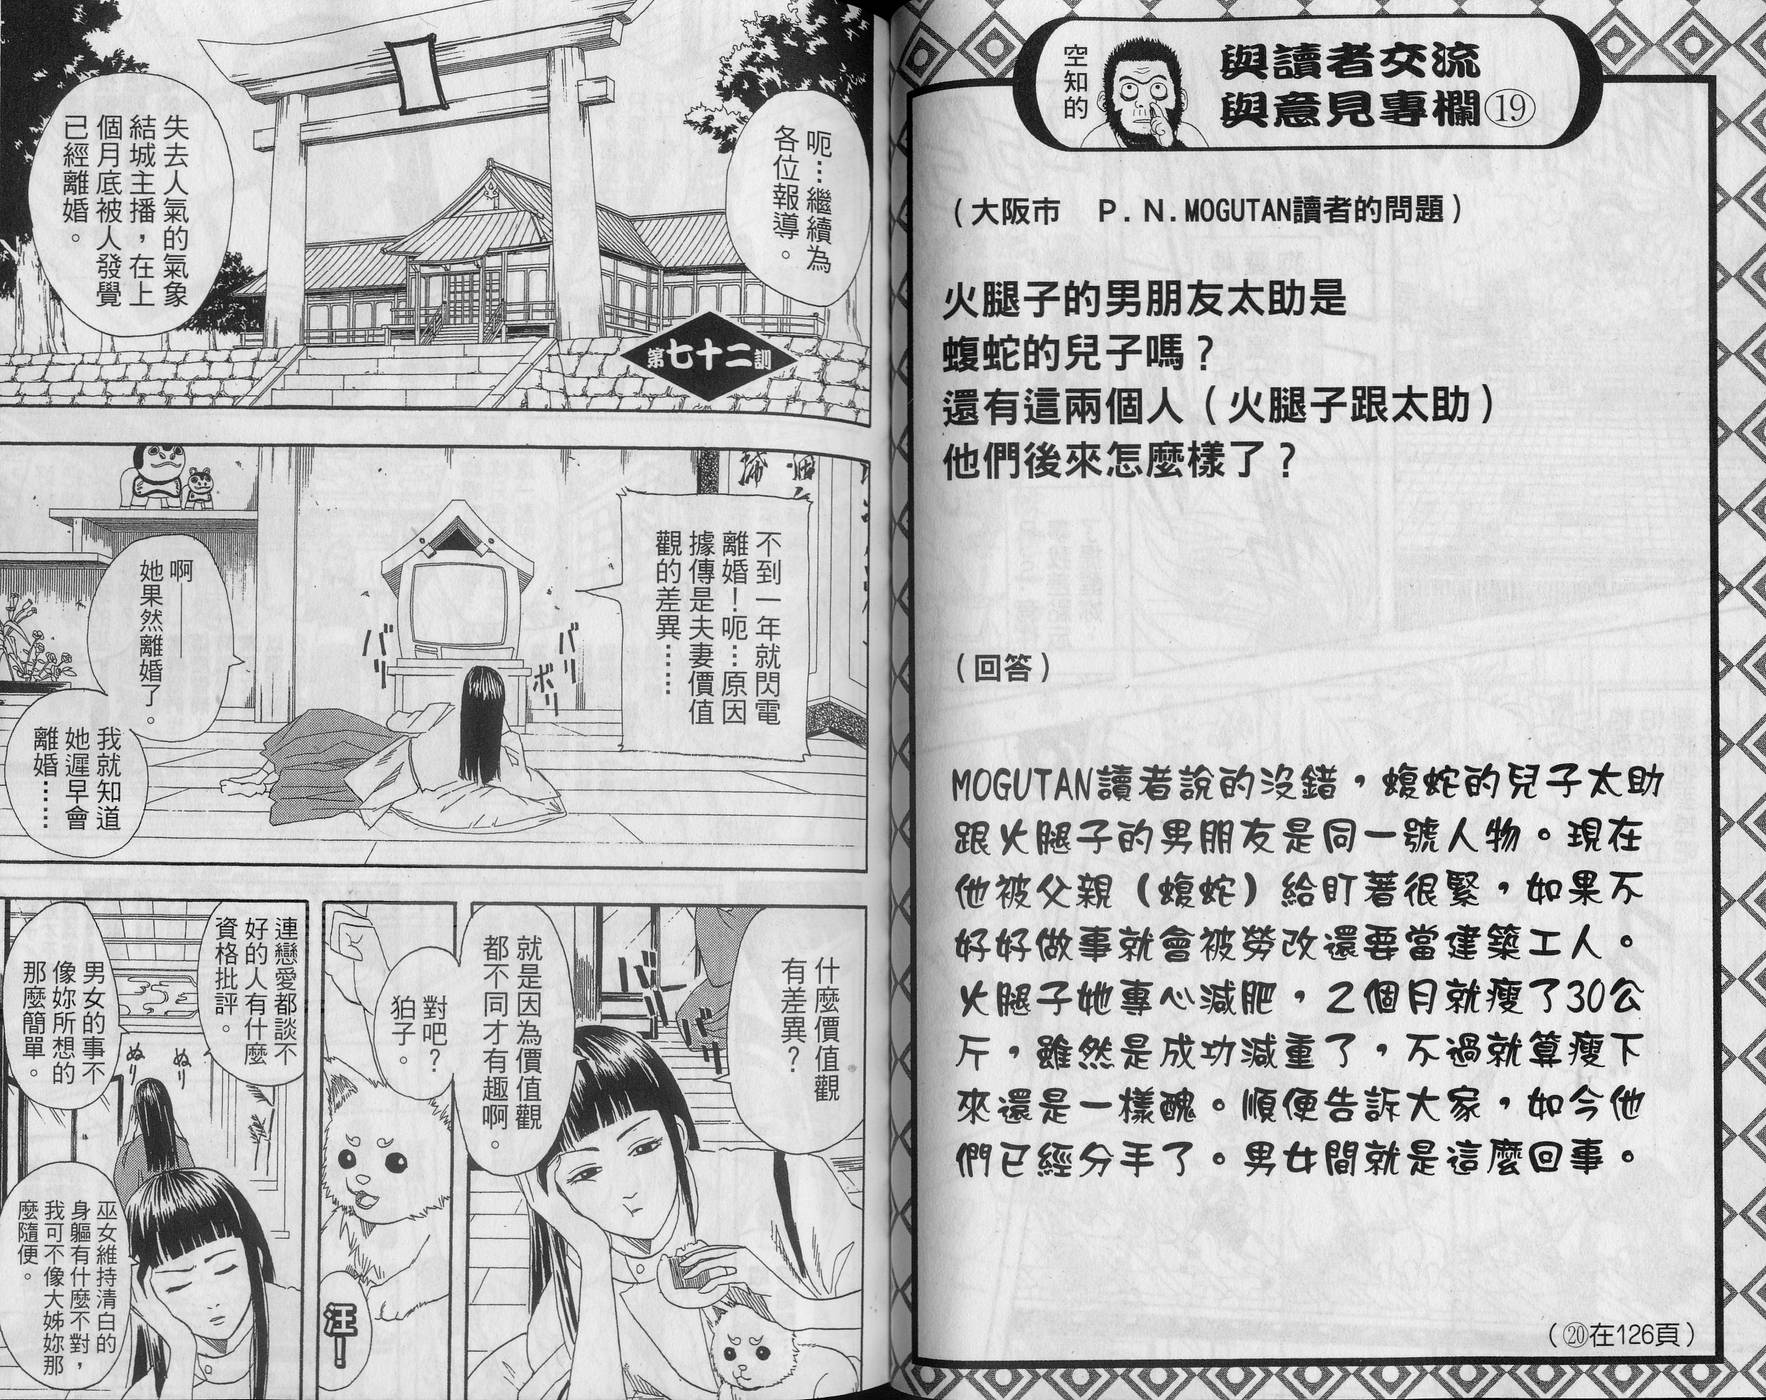 空知的
與讀者交流
與意見專欄⑲
（大阪市　P.N.MOGUTAN讀者的問題）
火腿子的男朋友太助是
蝮蛇的兒子嗎？
還有這兩個人（火腿子跟太助）
他們後來怎麼樣了？
（回答）
MOGUTAN讀者說的沒錯，蝮蛇的兒子太助
跟火腿子的男朋友是同一號人物。現在
他被父親（蝮蛇）給盯著很緊，如果不
好好做事就會被勞改還要當建築工人。
火腿子她專心減肥，2個月就瘦了30公
斤，雖然是成功減重了，不過就算瘦下
來還是一樣醜。順便告訴大家，如今他
們已經分手了。男女間就是這麼回事。
（⑳在126頁）
呃…繼續為
各位報導。
失去人氣的氣象
結城主播，在上
個月底被人發覺
已經離婚。
第七十二訓
不到一年就閃電
離婚！呃…原因
據傳是夫妻價值
觀的差異……
バリ
バリ
ボリ
啊——
她果然離婚了。
我就知道
她遲早會
離婚……
什麼價值觀
有差異？
就是因為價值觀
都不同才有趣啊。
對吧？
狛子。
汪！
連戀愛都談不
好的人有什麼
資格批評。
男女的事不
像妳所想的
那麼簡單。
ぬり
ぬり
巫女維持清白的
身軀有什麼不對，
我可不像大姊妳那
麼隨便。